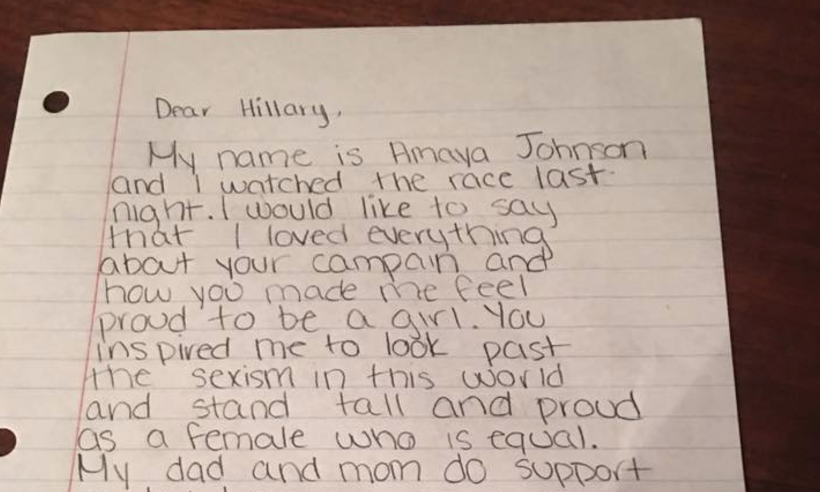 Dear Hillary,
My name is Amaya Johnson
and I watched the race last
night. I would like to say
that I loved everything
about your campain and
how you made me feel
proud to be a girl. You
inspired me to look past
the sexism in this world
and stand tall and proud
as a female who is equal.
My dad and mom do support